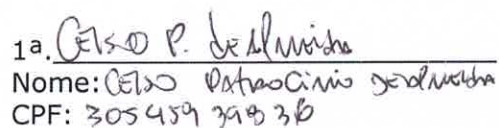 1ª. Celso P. de Almeida
Nome: Celso Patrocinio de Almeida
CPF: 305459398 36